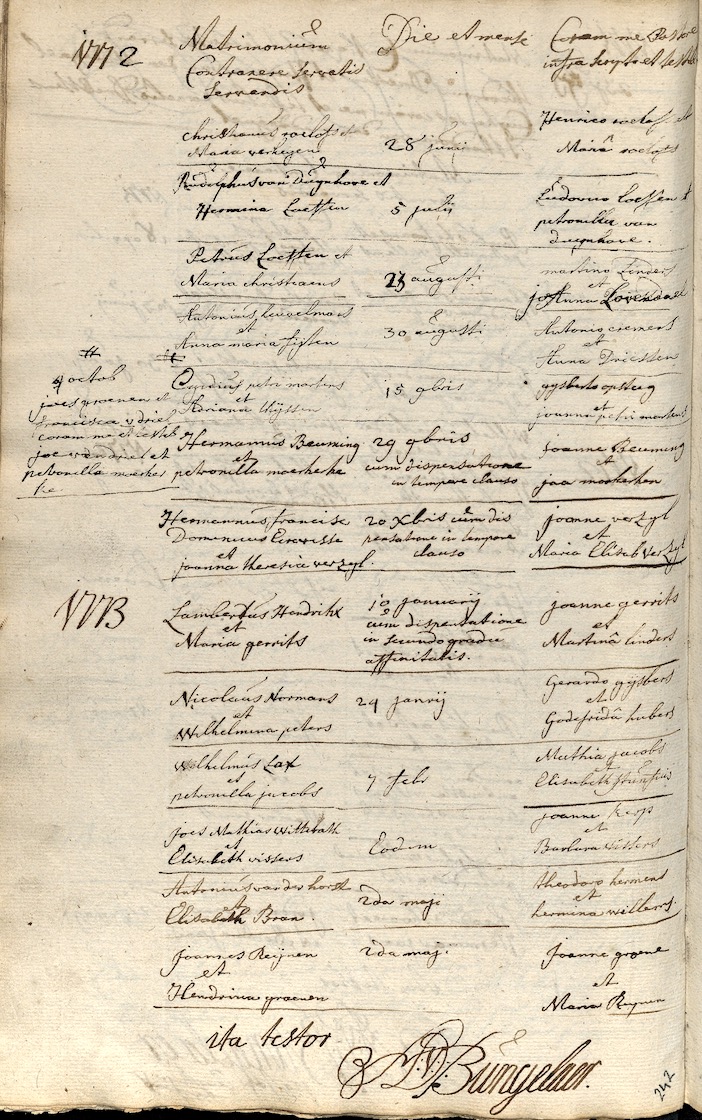 1772
Matrimonium
Contraxere servatis
Servandis
Die et mense
Coram me Pastore
infra scripto et testibus
christianus roelofs et
Maria verheyen
28 junii
Henrico roelofs et
Maria roelofs
Rudolphus van Duynhove et
Hermina Loeffen
5 julii
Ludovico Loeffen et
petronilla van
duynhove.
Petrus Loeffen et
Maria christiaens
23 augusti
martino Linders
et
Lovendael
Antonius
et
Anna maria
30 augusti
Antonio cremers
et
Anna Driessen
#
4 octob
joes groenen et
francisca
coram me et testib
joe et
petronilla moerker
ke
#
petri martens
et
Adriana thyssen
15 9bris
gysberto opsteeg
et
joanna petri martens
Hermannus Beuming
et
petronilla moerkerke
29 9bris
cum dispensatione
in tempore clauso
joanne Beuming
et
jaa moerkerken
Hermannus francisc
Dominicus
et
joanna theresia verzyl.
20 Xbris cum dis
pensatione in tempore
clauso
joanne verzyl
et
Maria Elisab verzyl
1773
Lambertus Hendrikx
et
Maria gerrits
10 januarij
cum dispensatione
in secundo gradu
affinitatis.
joanne gerrits
et
Martina linders
Nicolaus Hormans
et
Wilhelmina peters
24 janrij
Gerardo gysbers
et
Godefrida hubers
Wilhelmus Lax
et
petronilla jacobs
7 febr
Mathia jacobs
et
Elisabeth
joes Mathias
et
Elisabeth vissers
Eodem
joanne
et
Barbara vissers
Antonius van der horst
et
Elisabeth Bran
2da maji
theodoro hermens
et
hermina willems
joannes Reijnen
et
Hendrina groenen
2da maj.
joanne groene
et
Maria Reynen
ita testor
Bungelaer.
242